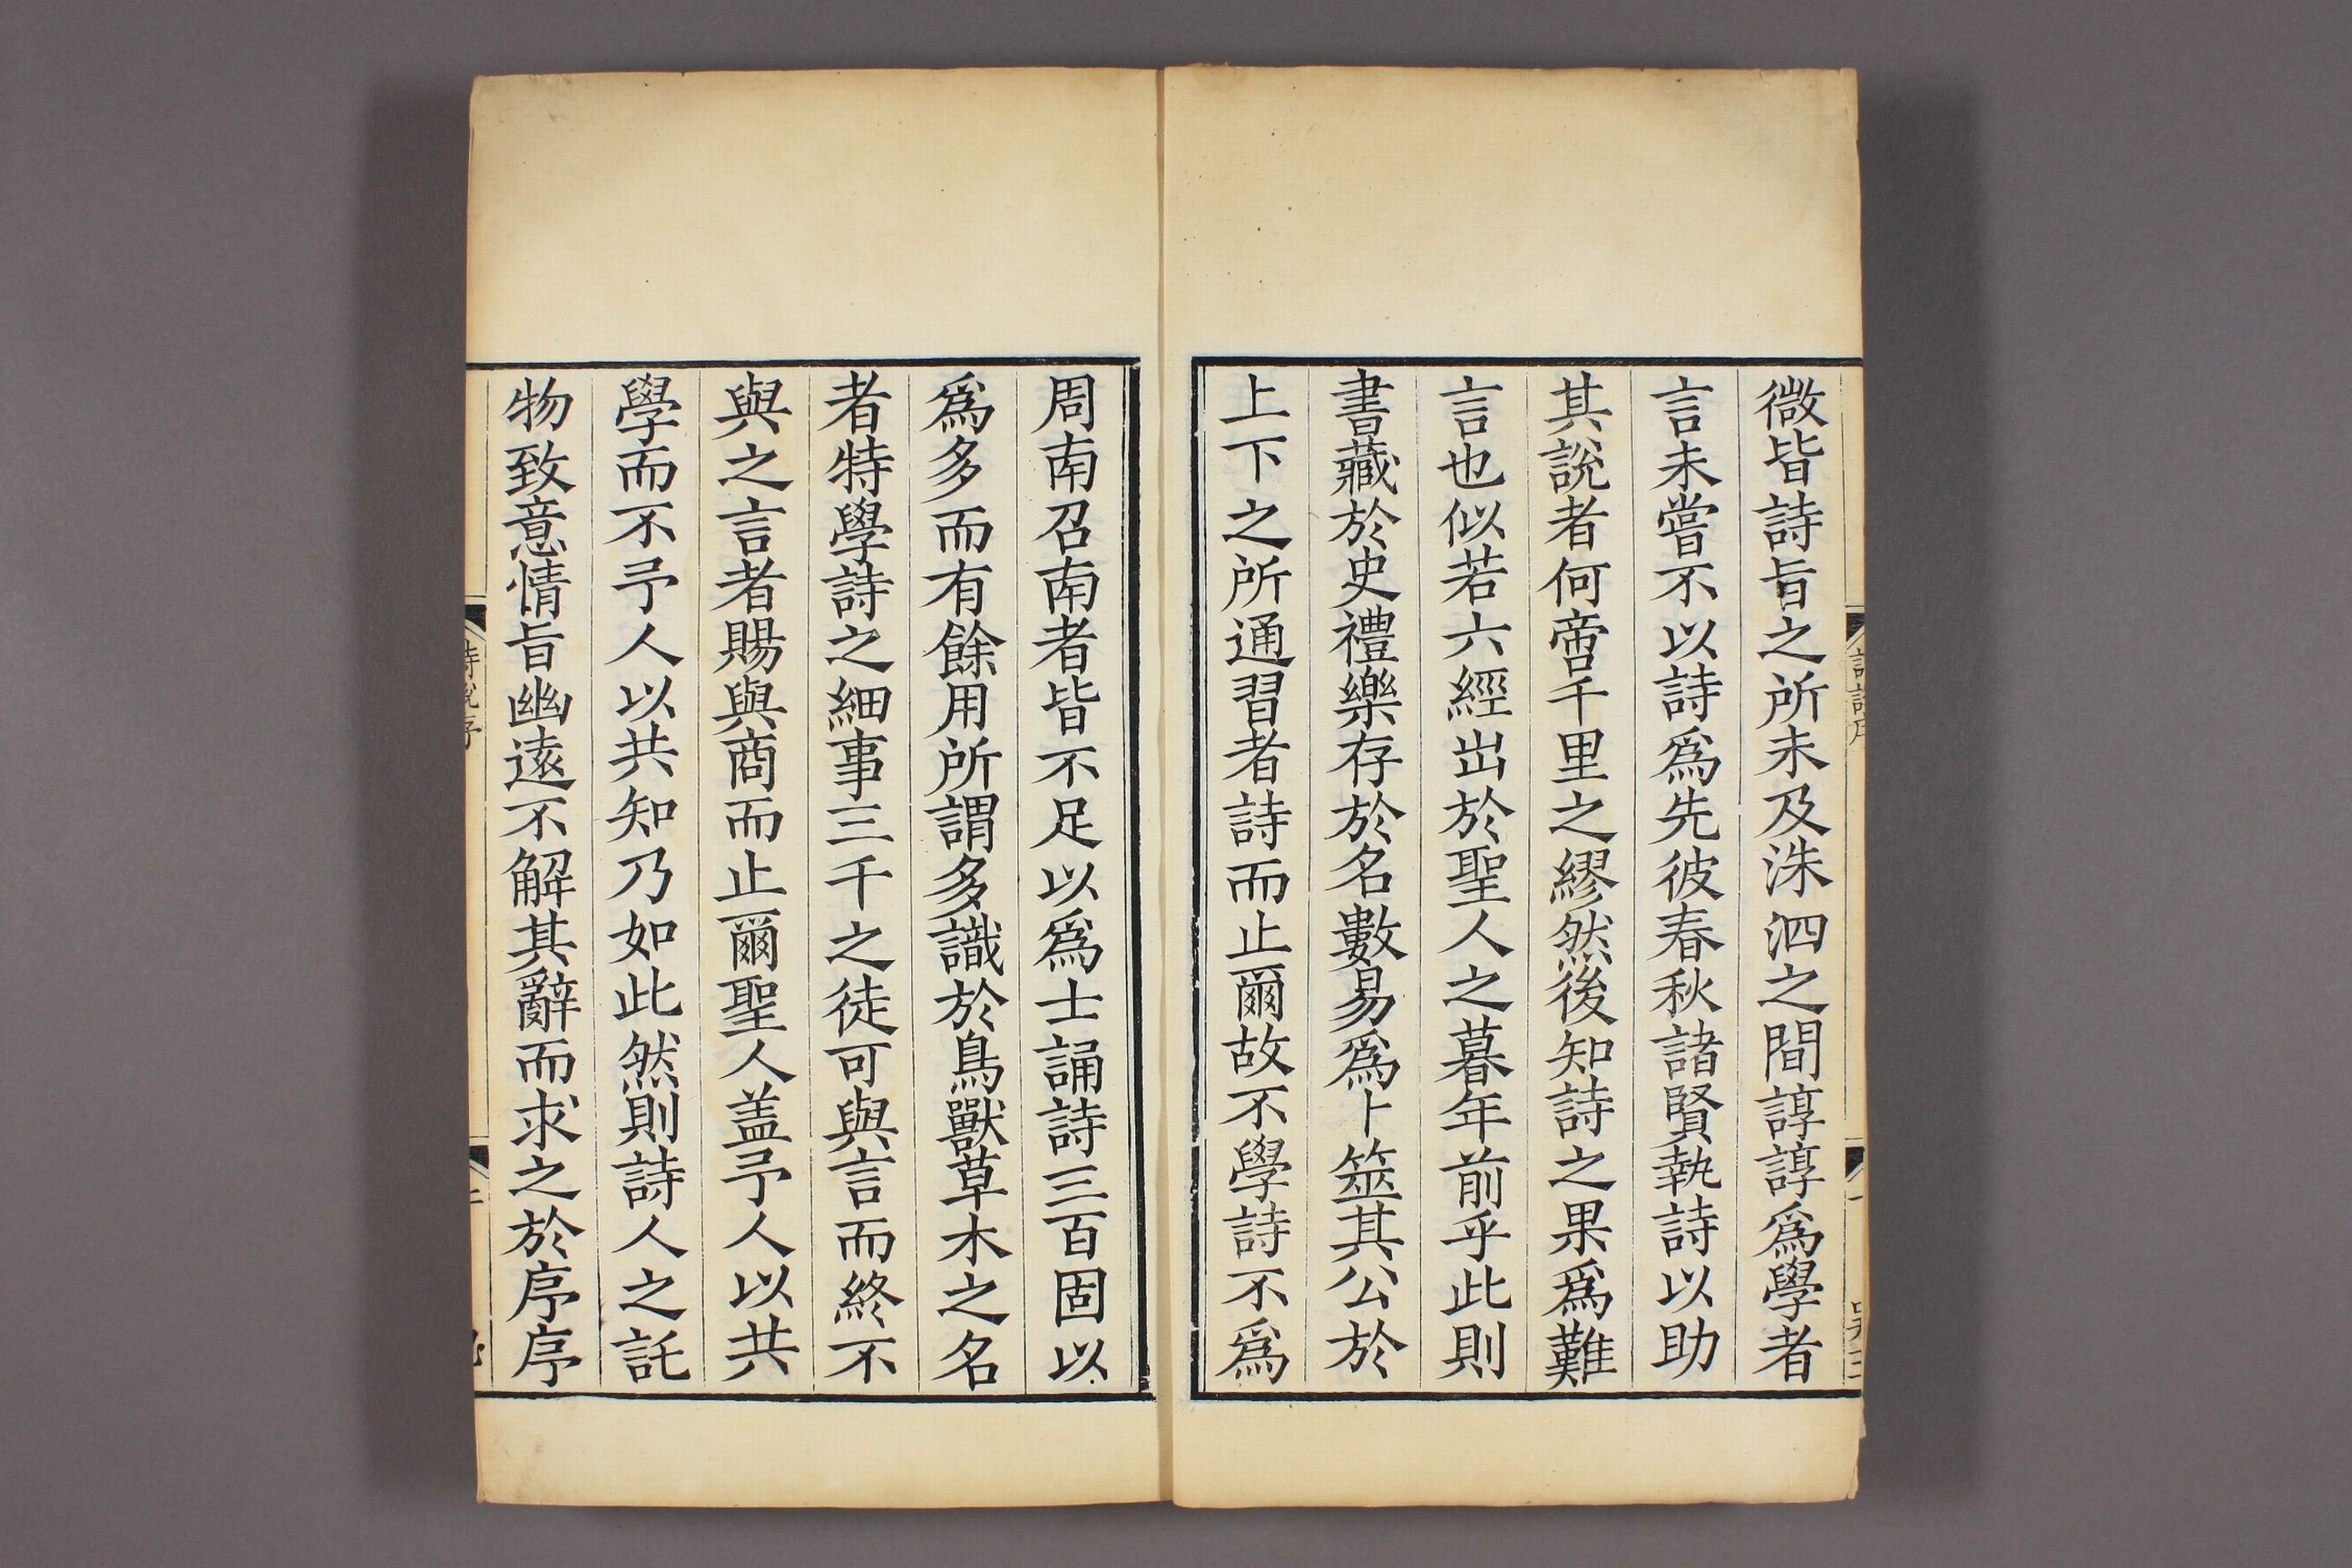 微皆詩旨之所未及洙泗之間諄諄爲學者
言未嘗不以詩爲先彼春秋諸賢執詩以助
其說者何啻千里之繆然後知詩之果爲難
言也似若六經出於聖人之暮年前乎此則
書藏於史禮樂存於名數易爲卜筮其公於
上下之所通習者詩而止爾故不學詩不爲
周南召南者皆不足以爲士誦詩三百固以
爲多而有餘用所謂多識於鳥獸草木之名
者特學詩之細事三千之徒可與言而終不
與之言者賜與商而止爾聖人盖予人以共
學而不予人以共知乃如此然則詩人之託
物致意情旨幽遠不解其辭而求之於序序
詩說序